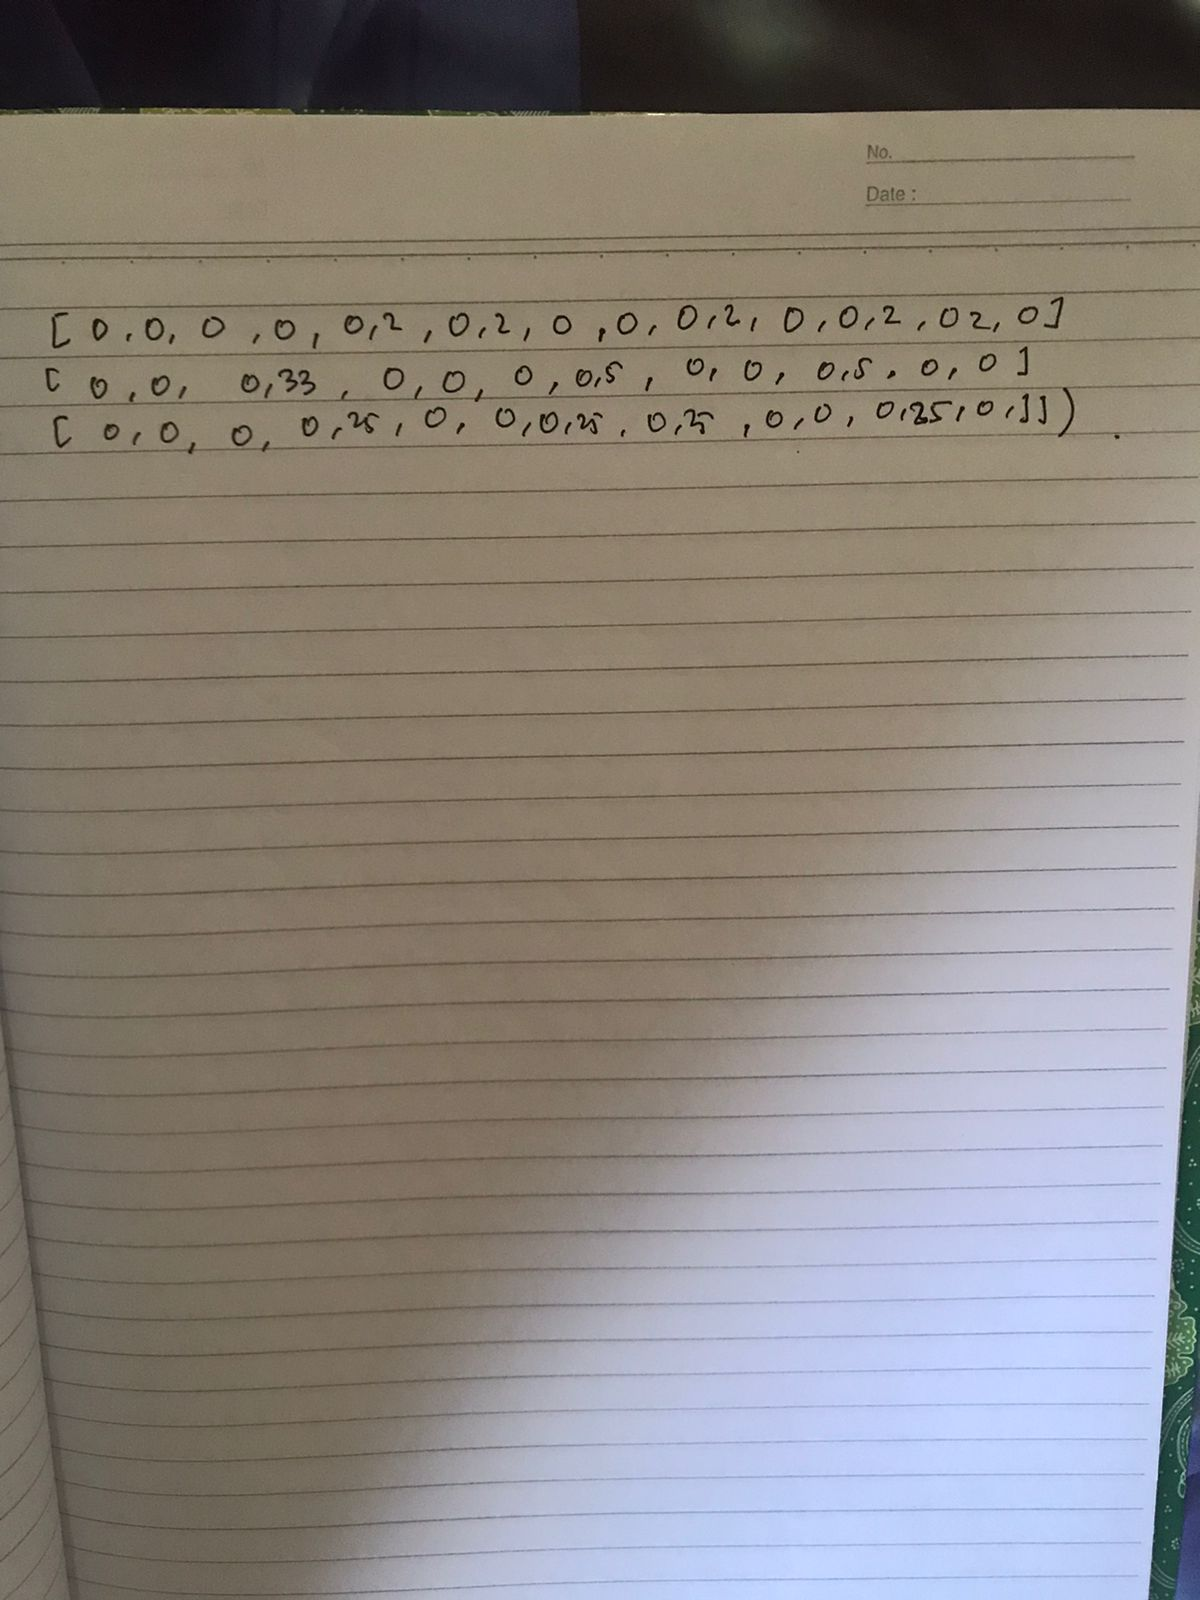 No.
Date :
[ 0, 0, 0, 0, 0,2, 0,2, 0, 0, 0,2, 0, 0,2, 02, 0]
[ 0, 0, 0,33, 0, 0, 0, 0,5, 0, 0, 0,5, 0, 0 ]
[ 0, 0, 0, 0,25, 0, 0, 0,25, 0,25, 0, 0, 0,25, 0, ]])